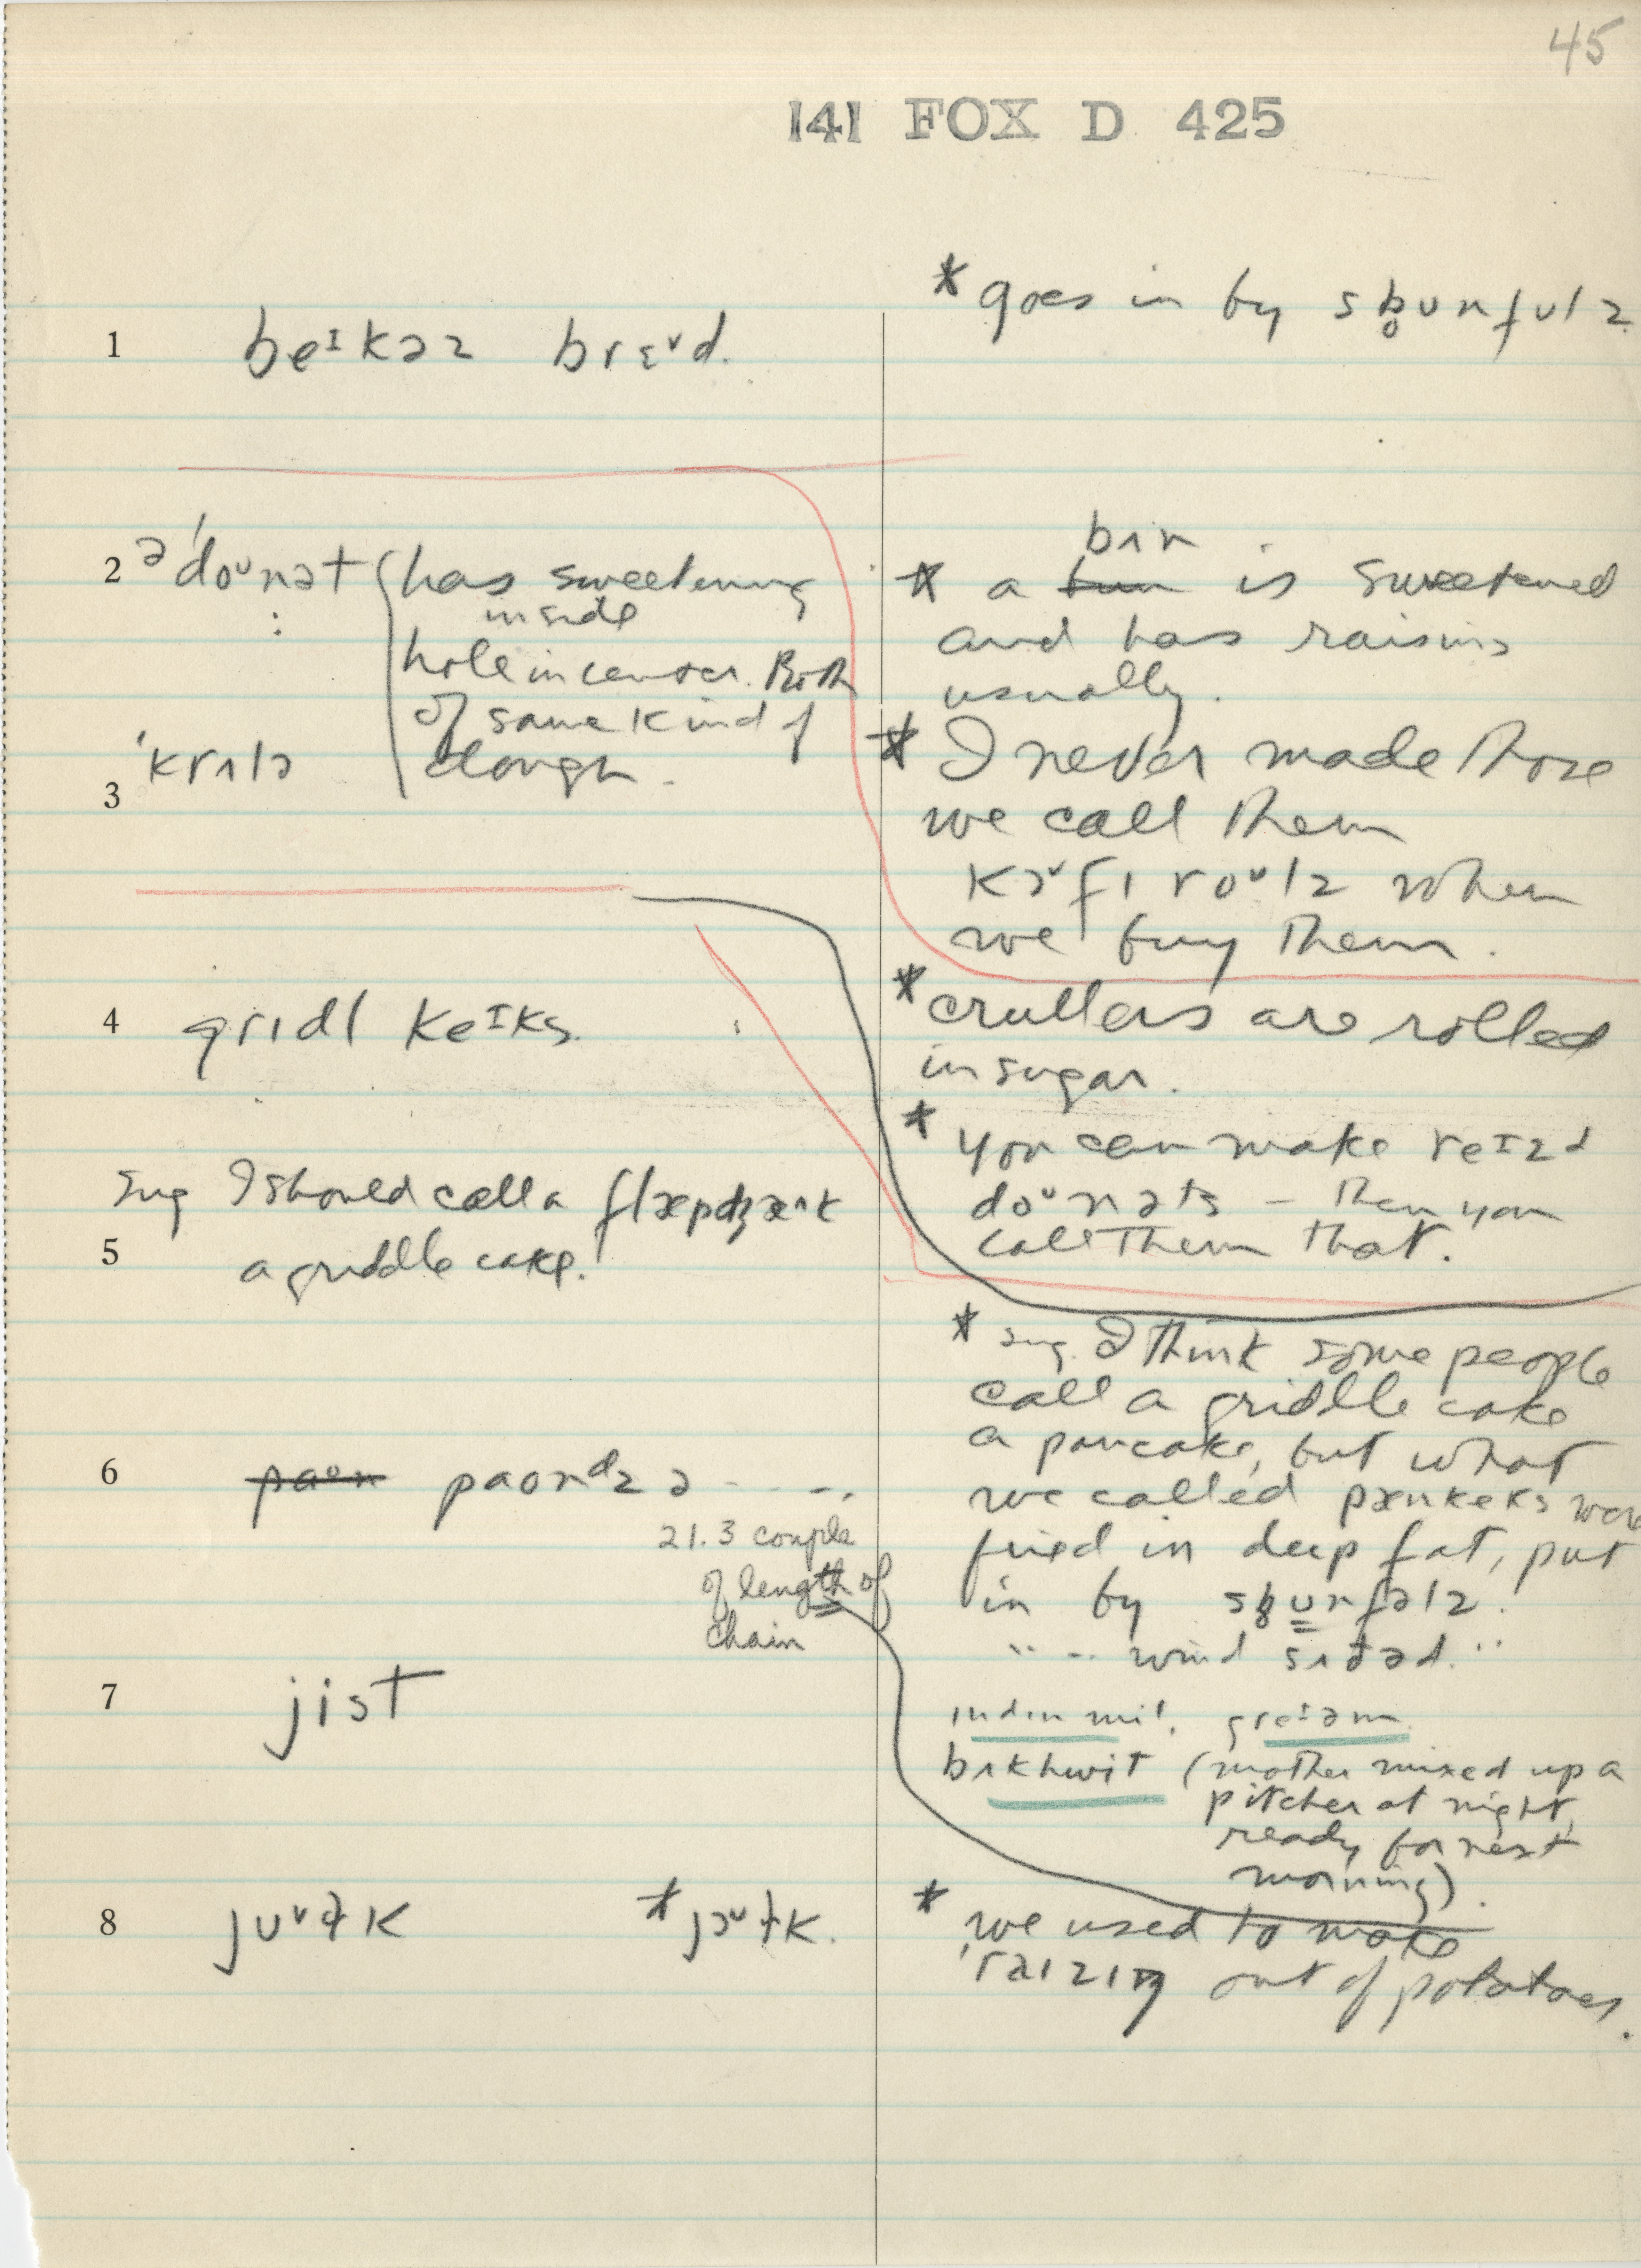 45
141 FOX D 425
1 beᶦkəz brɛᵛd.
2 ə ˈdoᵘnət (has sweetening
inside
hole in center. Both
of same kind of
3 ˈkrʌlə dough.
4 gridl keᶦks.
sug I should call a flæpdʒæᴧk
5 a griddle cake.
6 paon paondz ə - - - -.
21.3 couple
of length of
chain
7 jist
8 juᵛɫk *jɔᵛɫk.
* goes in by sb̥unfulz
bʌn
* a bun is sweetened
and has raisins
usually.
* I never made those
we call them
kɔᵛfɪ roᵘlz when
we buy them.
* crullers are rolled
in sugar.
* you can make reᶦzd
doᵘnəts – then you
call them that.
* sug. I think some people
call a griddle cake
a pancake, but what
we called pænkeks were
fried in deep fat, put
in by sb̥unfəlz.
" -- wind sɪdəd. "
ɪndɪn mil, greᶦəm
bʌkhwit (mother mixed up a
pitcher at night,
ready for next
morning).
* we used to make
ˈraɪzɪŋ out of potatoes.